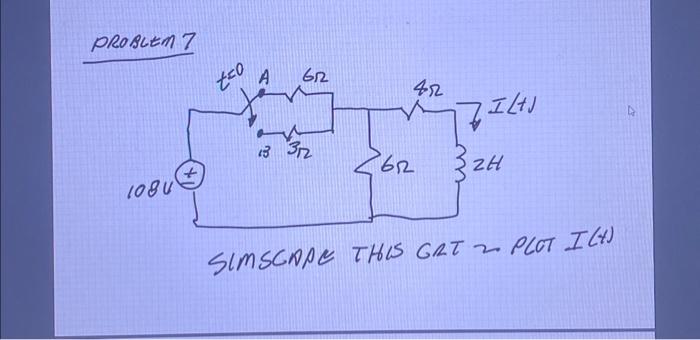 PROBLEM 7
t=0 A 6Ω
4Ω
I(t)
B 3Ω
6Ω
2H
108V
+
SIMSCAPE THIS CKT ~ PLOT I(t)